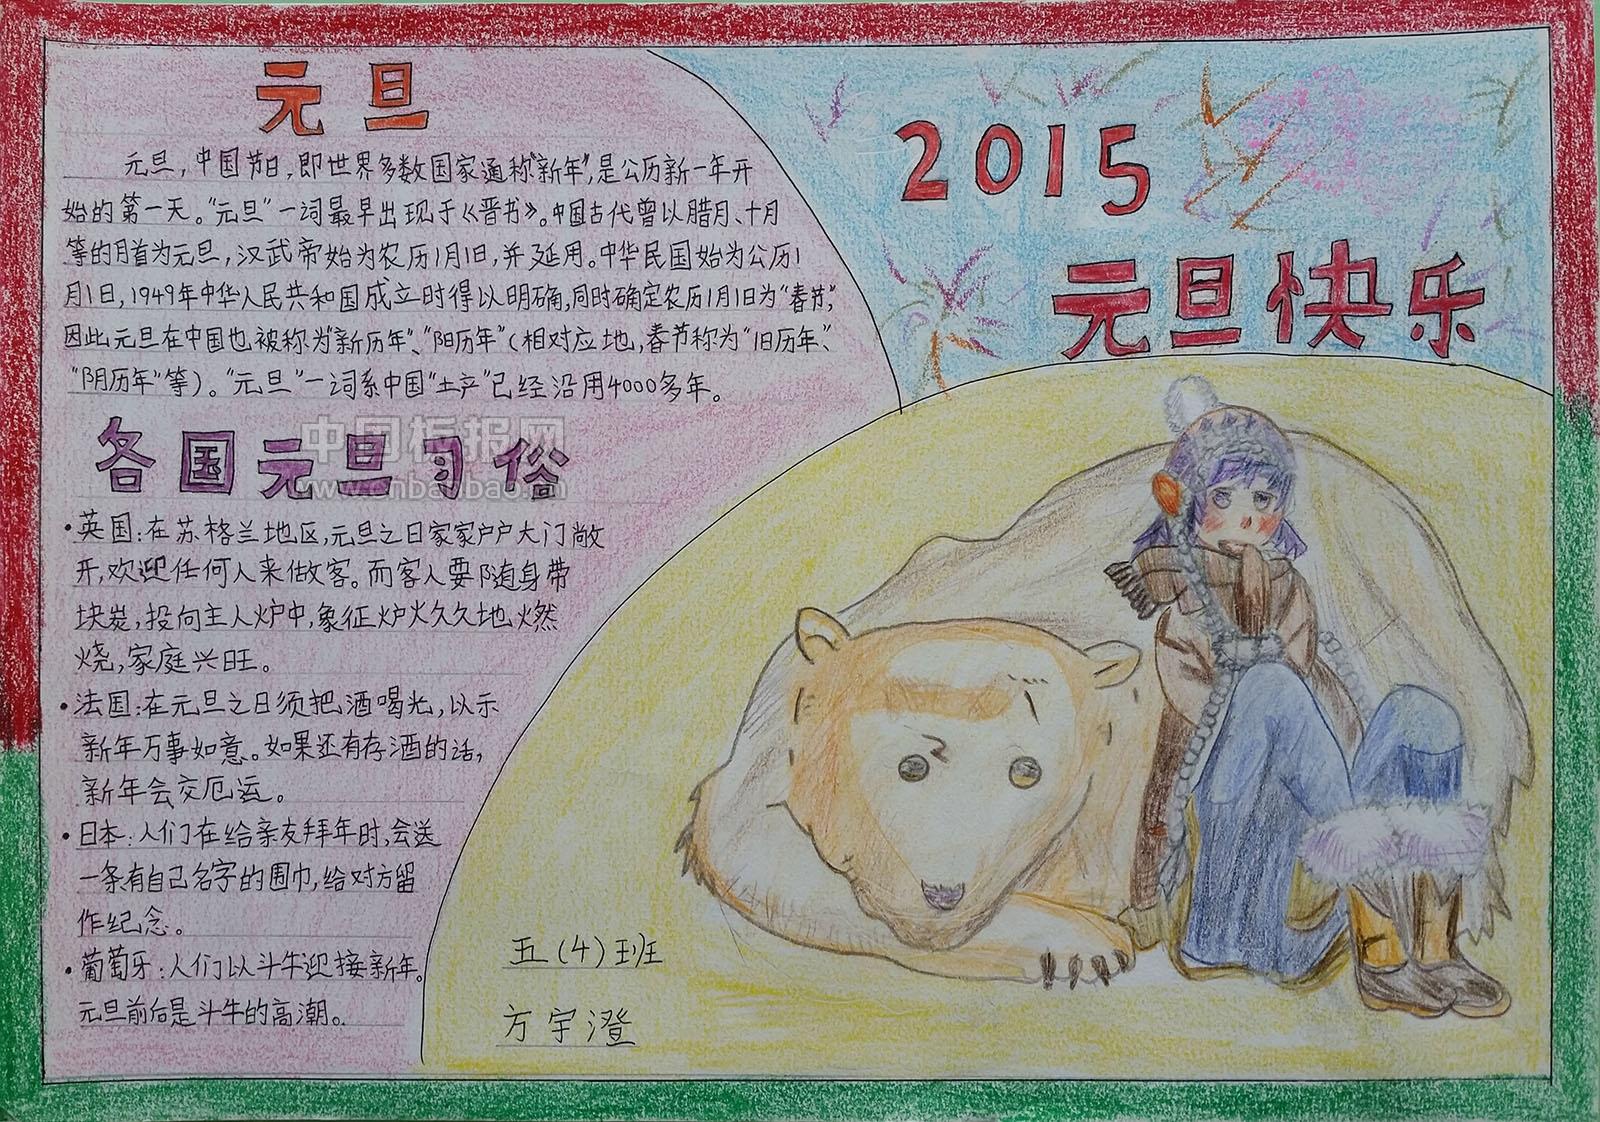 元旦
元旦，中国节日，即世界多数国家通称“新年”，是公历新一年开
始的第一天。“元旦”一词最早出现于《晋书》。中国古代曾以腊月、十月
等的月首为元旦，汉武帝始为农历1月1日，并延用。中华民国始为公历1
月1日，1949年中华人民共和国成立时得以明确，同时确定农历1月1日为“春节”，
因此元旦在中国也被称为“新历年”、“阳历年”（相对应地，春节称为“旧历年”、
“阴历年”等）。“元旦”一词系中国“土产”已经沿用4000多年。
各国元旦习俗
中国板报网
www.cnbanbao.cn
·英国：在苏格兰地区，元旦之日家家户户大门敞
开，欢迎任何人来做客。而客人要随身带
块炭，投向主人炉中，象征炉火久久地燃
烧，家庭兴旺。
·法国：在元旦之日须把酒喝光，以示
新年万事如意。如果还有存酒的话，
新年会交厄运。
·日本：人们在给亲友拜年时，会送
一条有自己名字的围巾，给对方留
作纪念。
·葡萄牙：人们以斗牛迎接新年。
元旦前后是斗牛的高潮。
2015
元旦快乐
五（4）班
方宇澄